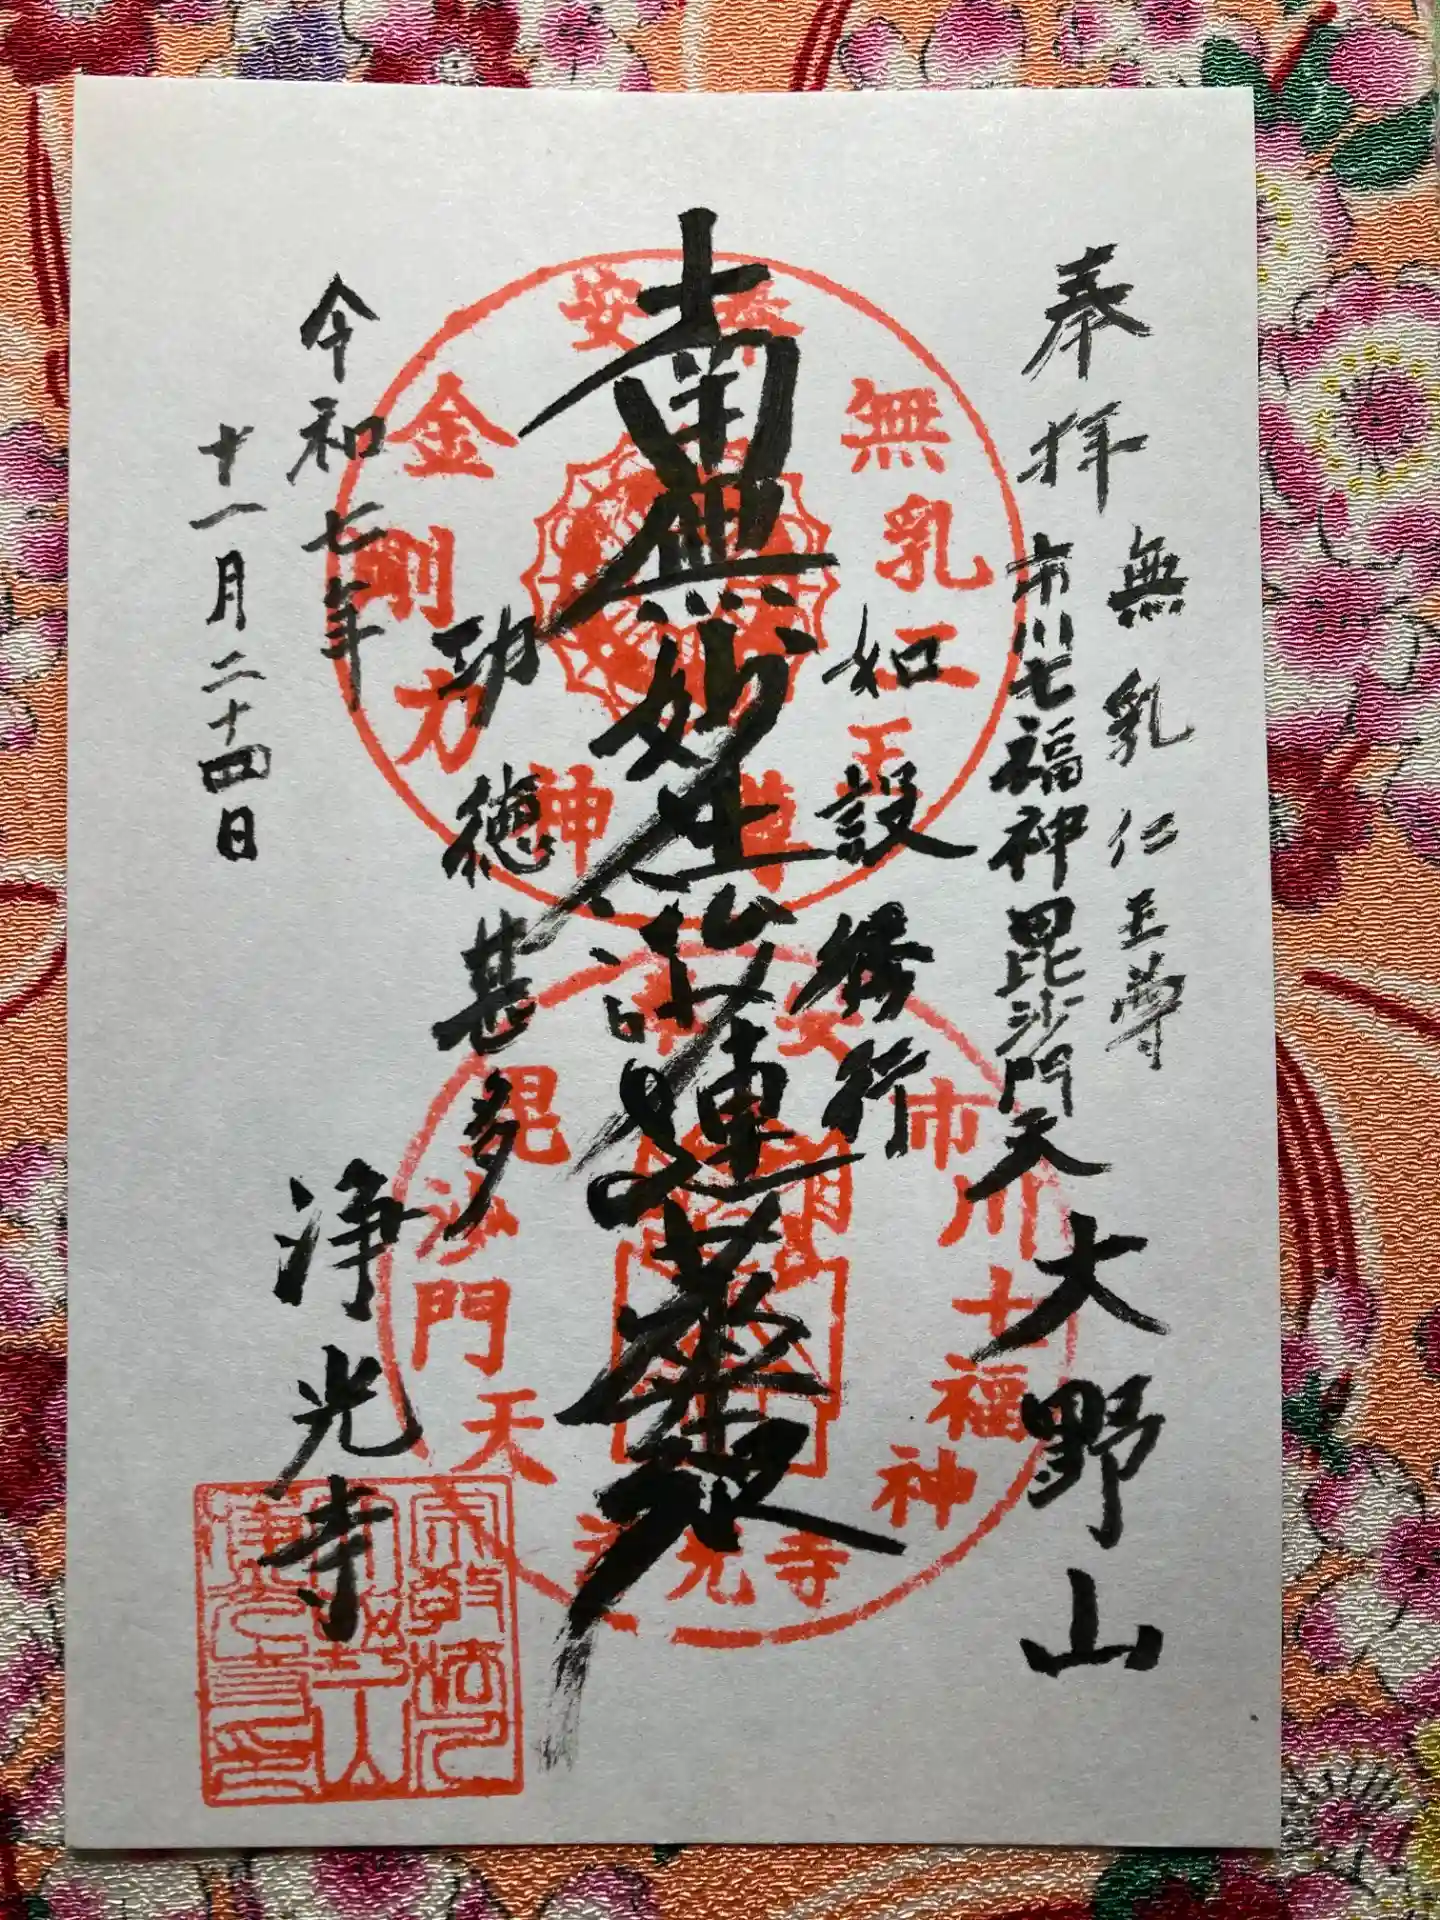 奉拝
無乳仁王尊
市川七福神毘沙門天
大野山
如設修行
南無妙法蓮華経
功徳甚多
令和七年
十一月二十四日
浄光寺
無乳仁王尊
金剛力神
安
市川七福神
毘沙門天
光寺